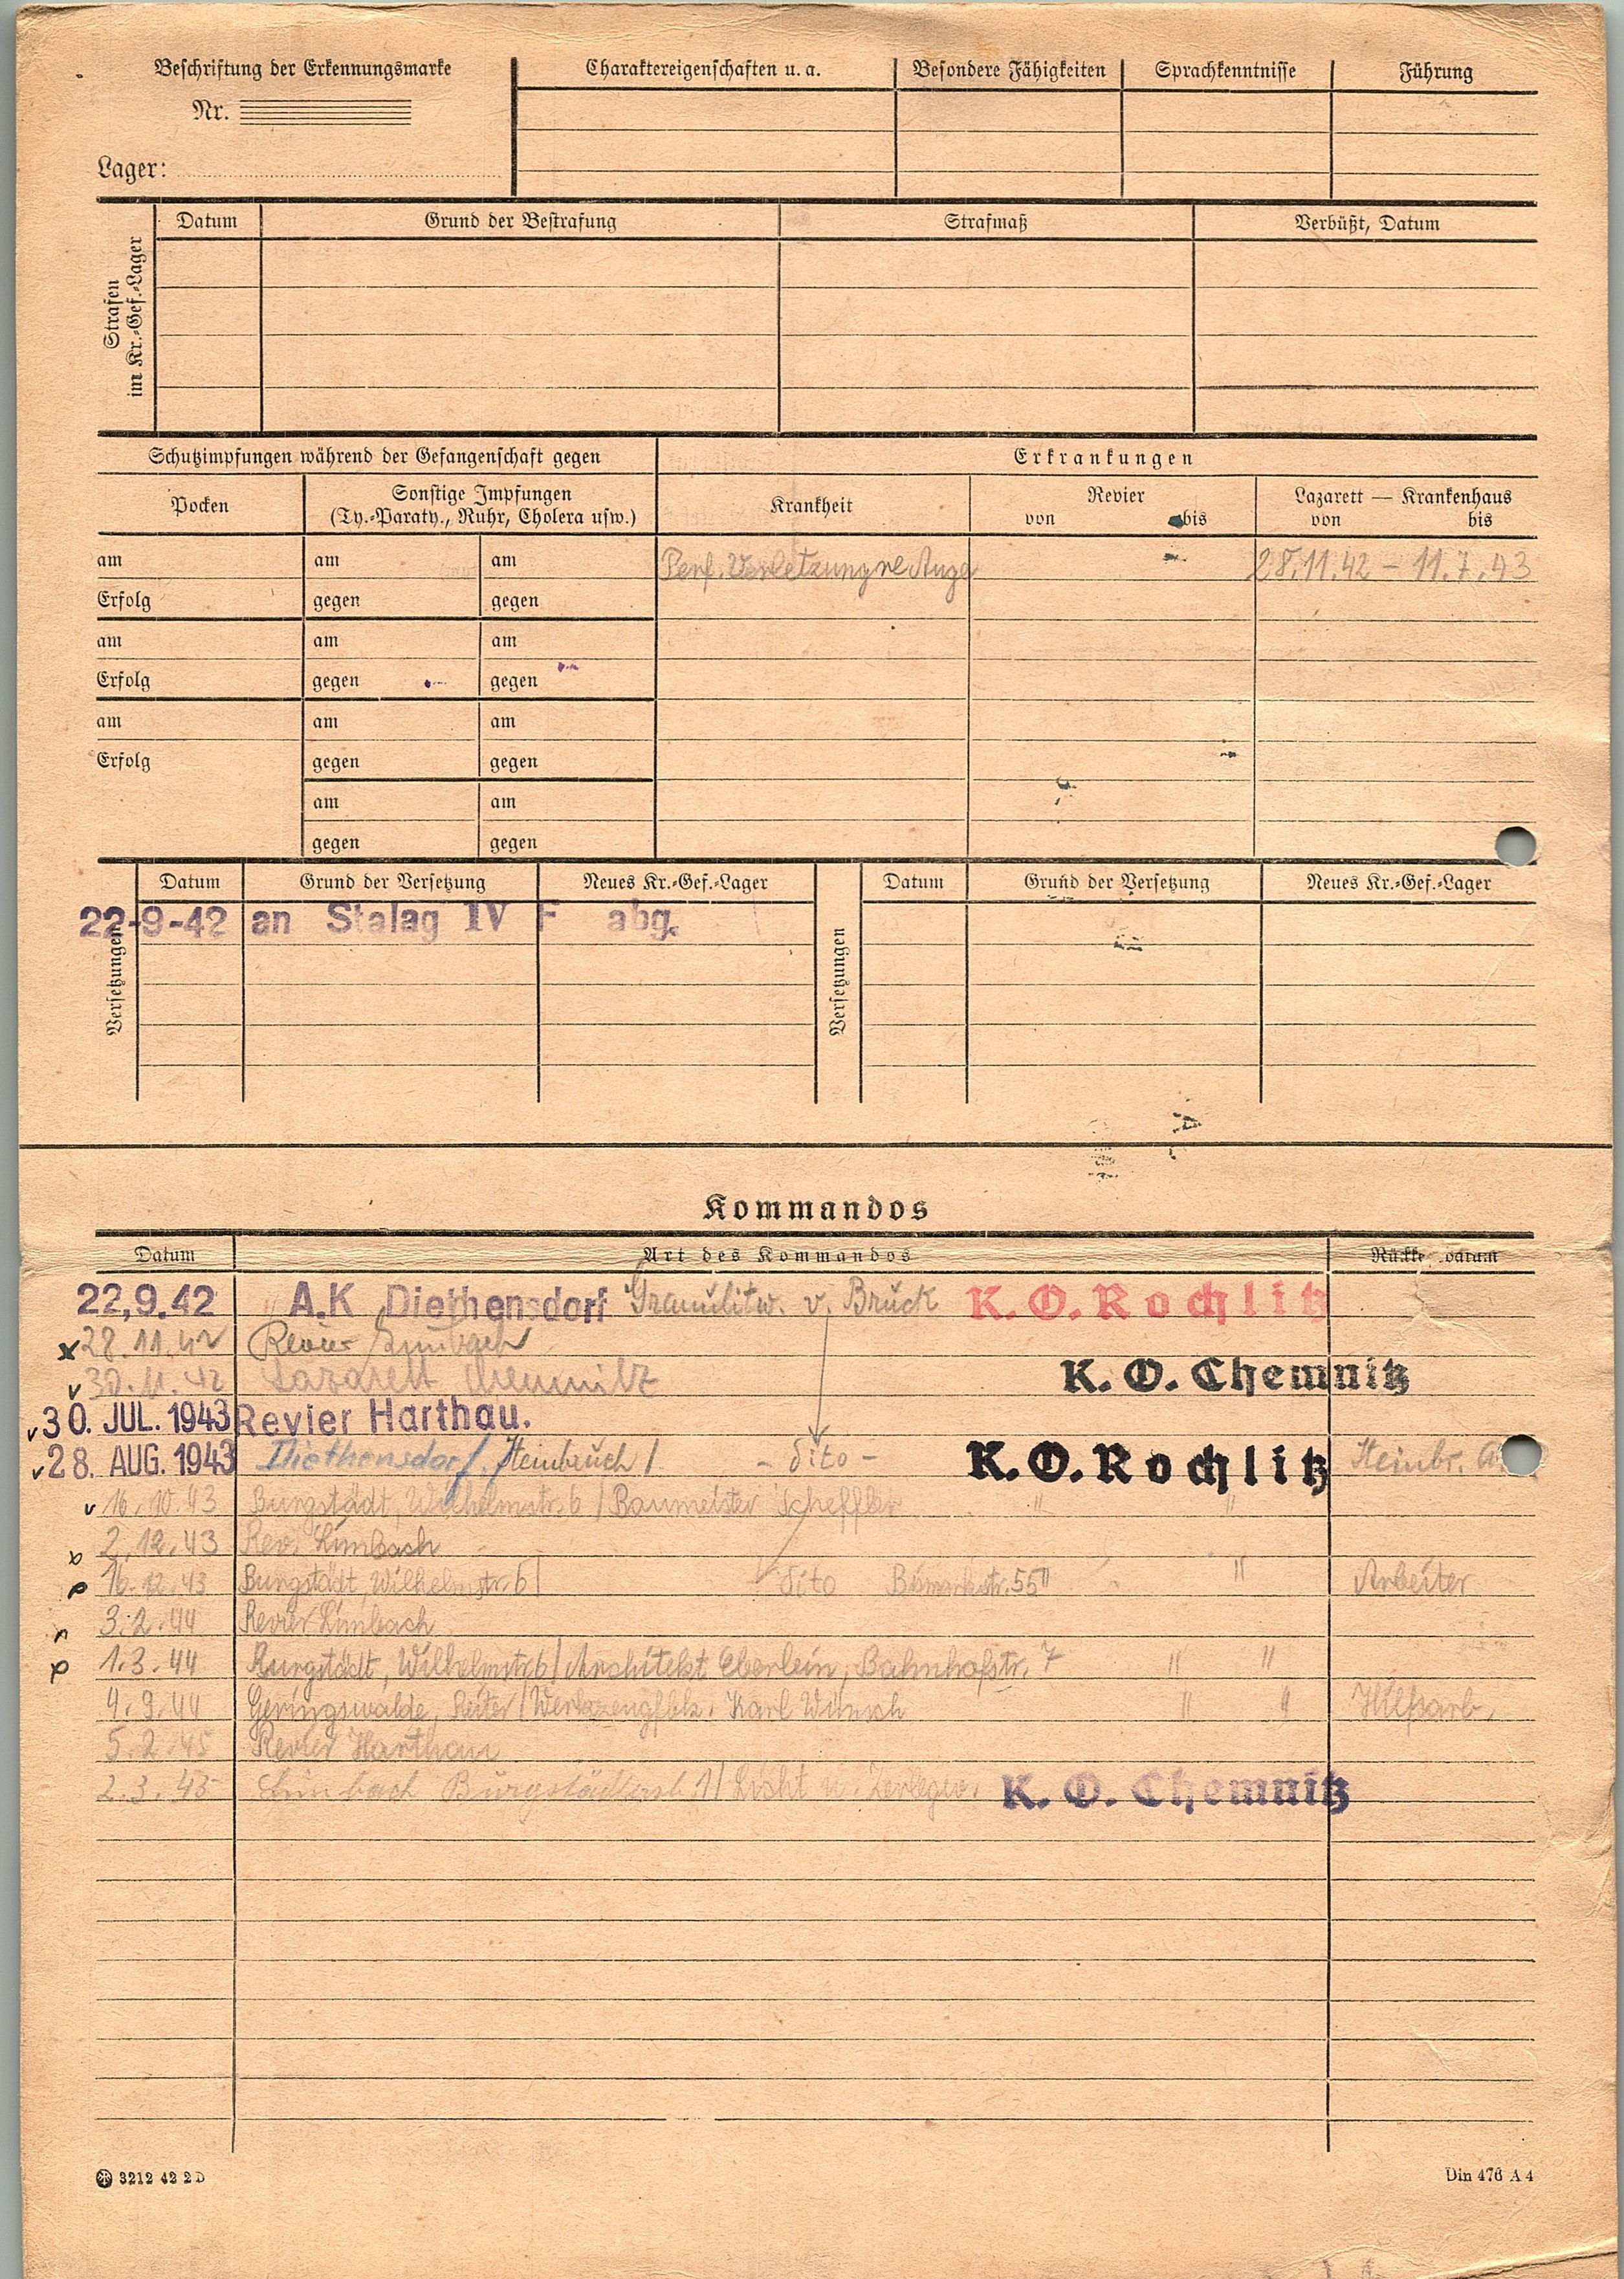 Beschriftung der Erkennungsmarke
Nr.
Lager:
Charaktereigenschaften u. a. Besondere Fähigkeiten Sprachkenntnisse Führung
Strafen im Kr.-Gef.-Lager
Datum Grund der Bestrafung Strafmaß Verbüßt, Datum
Schutzimpfungen während der Gefangenschaft gegen Erkrankungen
Pocken Sonstige Impfungen (Ty.-Paraty., Ruhr, Cholera usw.) Krankheit Revier von bis Lazarett — Krankenhaus von bis
am am am Perf. Verletzung re Auge 28.11.42 – 11.7.43
Erfolg gegen gegen
am am am
Erfolg gegen gegen
am am am
Erfolg gegen gegen
am am
gegen gegen
Versetzungen Datum Grund der Versetzung Neues Kr.-Gef.-Lager Versetzungen Datum Grund der Versetzung Neues Kr.-Gef.-Lager
22-9-42 an Stalag IV F abg.
Kommandos
Datum Art des Kommandos
22,9.42 " A.K Diethensdorf Granulitw. v. Brück K. O. Rochlitz
x 28.11.42 Revier Limbach
v 30.11.42 Lazarett Chemnitz K. O. Chemnitz
v 30. JUL. 1943 Revier Harthau.
v 28. AUG. 1943 Diethensdorf, Steinbruch / - dito - K. O. Rochlitz Steinbr.
v 16.10.43 Burgstädt, Wilhelmstr. 6 / Baumeister Scheffler " "
2.12.43 Rev. Limbach
16.12.43 Burgstädt, Wilhelmstr. 6 / dito Bismarkstr. 55 " " Arbeiter
3.2.44 Revier Limbach
1.3.44 Burgstädt, Wilhelmstr. 6 / Architekt Eberlein, Bahnhofstr. 7 " "
4.9.44 Geringswalde, Reiter / Werkzeugfbk. Karl Wünsch " " Hilfsarb.
5.2.45 Revier Harthau
2.3.45 Limbach Burgstädterstr. 1 / Licht u. K. O. Chemnitz
3212 42 2 D
Din 476 A 4